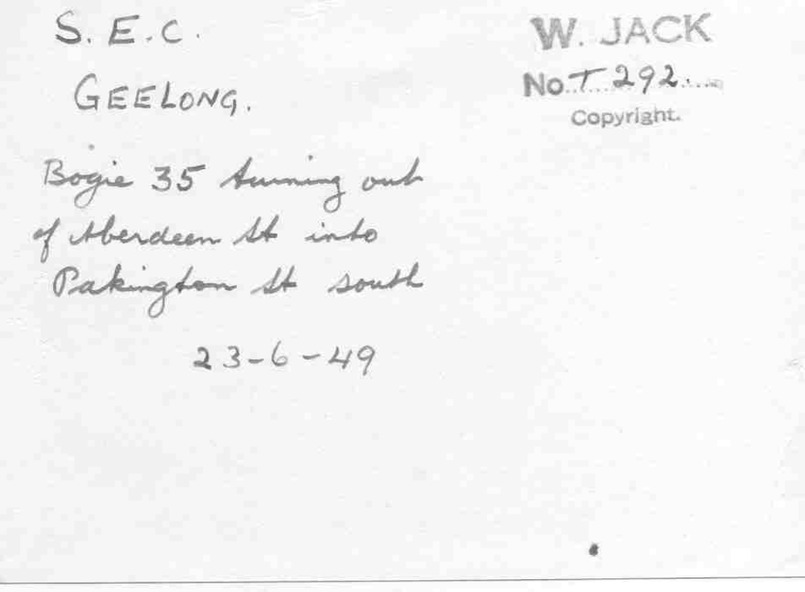 S. E. C.
GEELONG.
W. JACK
No. T 292.
Copyright.
Bogie 35 turning out
of Aberdeen St into
Pakington St south
23-6-49